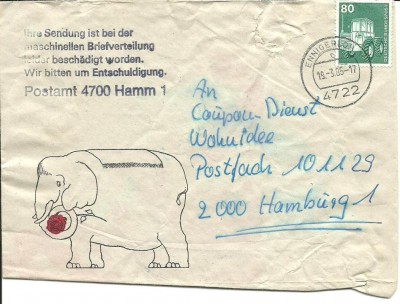 Ihre Sendung ist bei der
maschinellen Briefverteilung
leider beschädigt worden.
Wir bitten um Entschuldigung.
Postamt 4700 Hamm 1
80
ENNIGERLOH
19.-3.85-17
4722
An
Coupon-Dienst
Wohnidee
Postfach 101129
2000 Hamburg 1